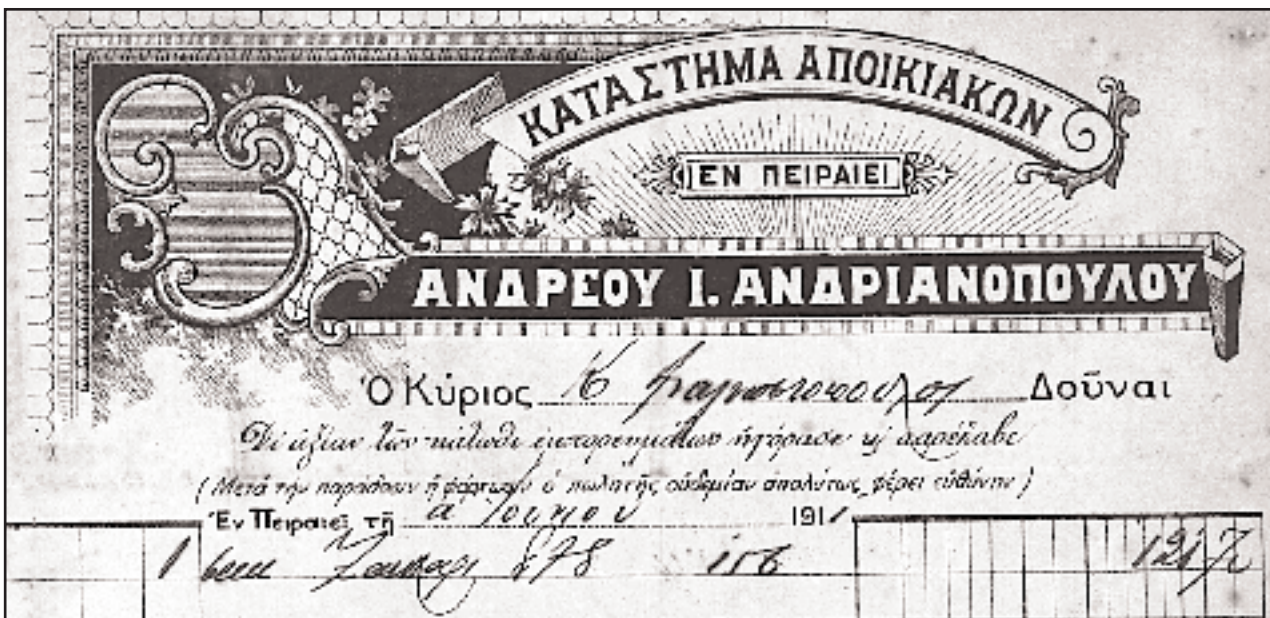 ΚΑΤΑΣΤΗΜΑ ΑΠΟΙΚΙΑΚΩΝ
ΕΝ ΠΕΙΡΑΙΕΙ
ΑΝΔΡΕΟΥ Ι. ΑΝΔΡΙΑΝΟΠΟΥΛΟΥ
Ὁ Κύριος Δοῦναι
Δι' ἀξίαν τῶν κάτωθι ἐμπορευμάτων ἠγόρασε κ παρέλαβε
(Μετὰ τὴν παράδοσιν ἢ φόρτωσιν ὁ πωλητὴς οὐδεμίαν ἀπολύτως φέρει εὐθύνην)
Ἐν Πειραιεῖ τῇ α 1911
1 878 156